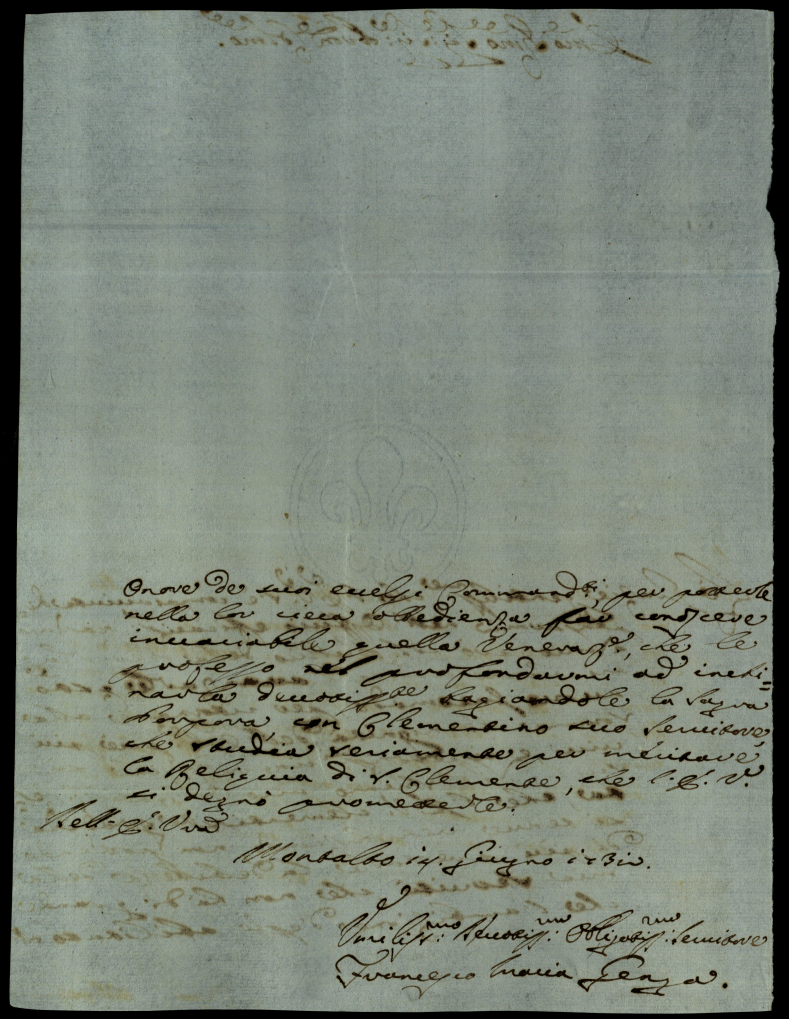 onore de suoi eccelsi Command:ti, per poterle
nella lor cieca obbedienza far conoscere
insaciabile quella Veneraz:e, che le
professo nel profondarmi ad inchi=
narla baciandole la Sagra
Porpora, con Clementino suo Servitore,
che studia seriamente per meritare
la Reliquia di S. Clemente, che l'E. V.
si degnò promettere.
Dell' E. Vra
Montalto 14. Giugno
Umiliss:mo Devotiss:mo Obligatiss:mo Servitore
Francesco Maria